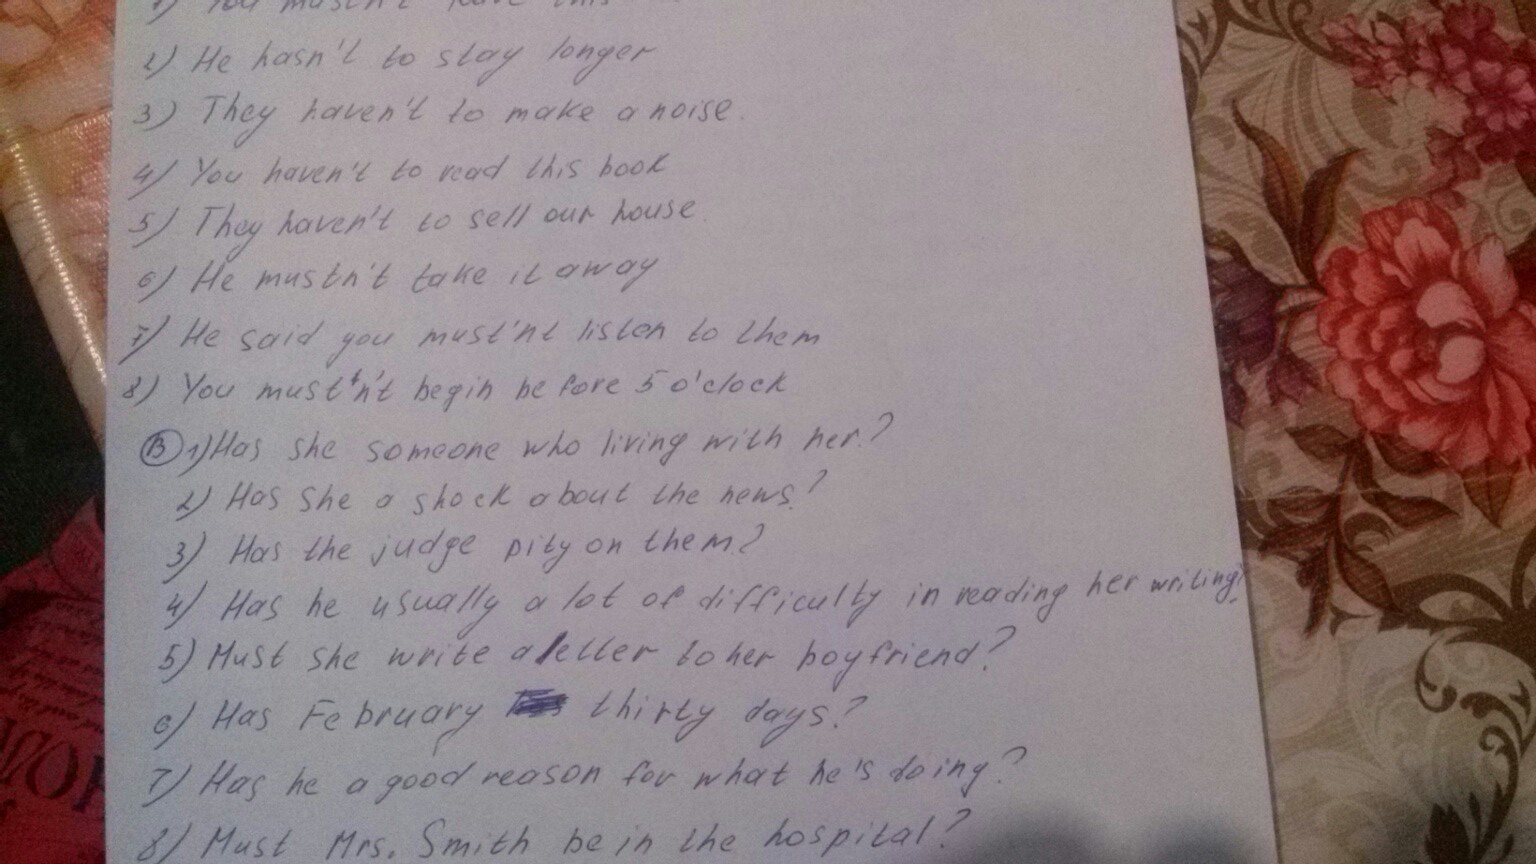 1) You mustn't leave this
2) He hasn't to stay longer
3) They haven't to make a noise.
4) You haven't to read this book
5) They haven't to sell our house.
6) He mustn't take it away
7) He said you must'nt listen to them
8) You mustn't begin before 5 o'clock
B 1) Has she someone who living with her?
2) Has she a shock about the news?
3) Has the judge pity on them?
4) Has he usually a lot of difficulty in reading her writing?
5) Must she write a letter to her boyfriend?
6) Has February thirty days?
7) Has he a good reason for what he's doing?
8) Must Mrs. Smith be in the hospital?